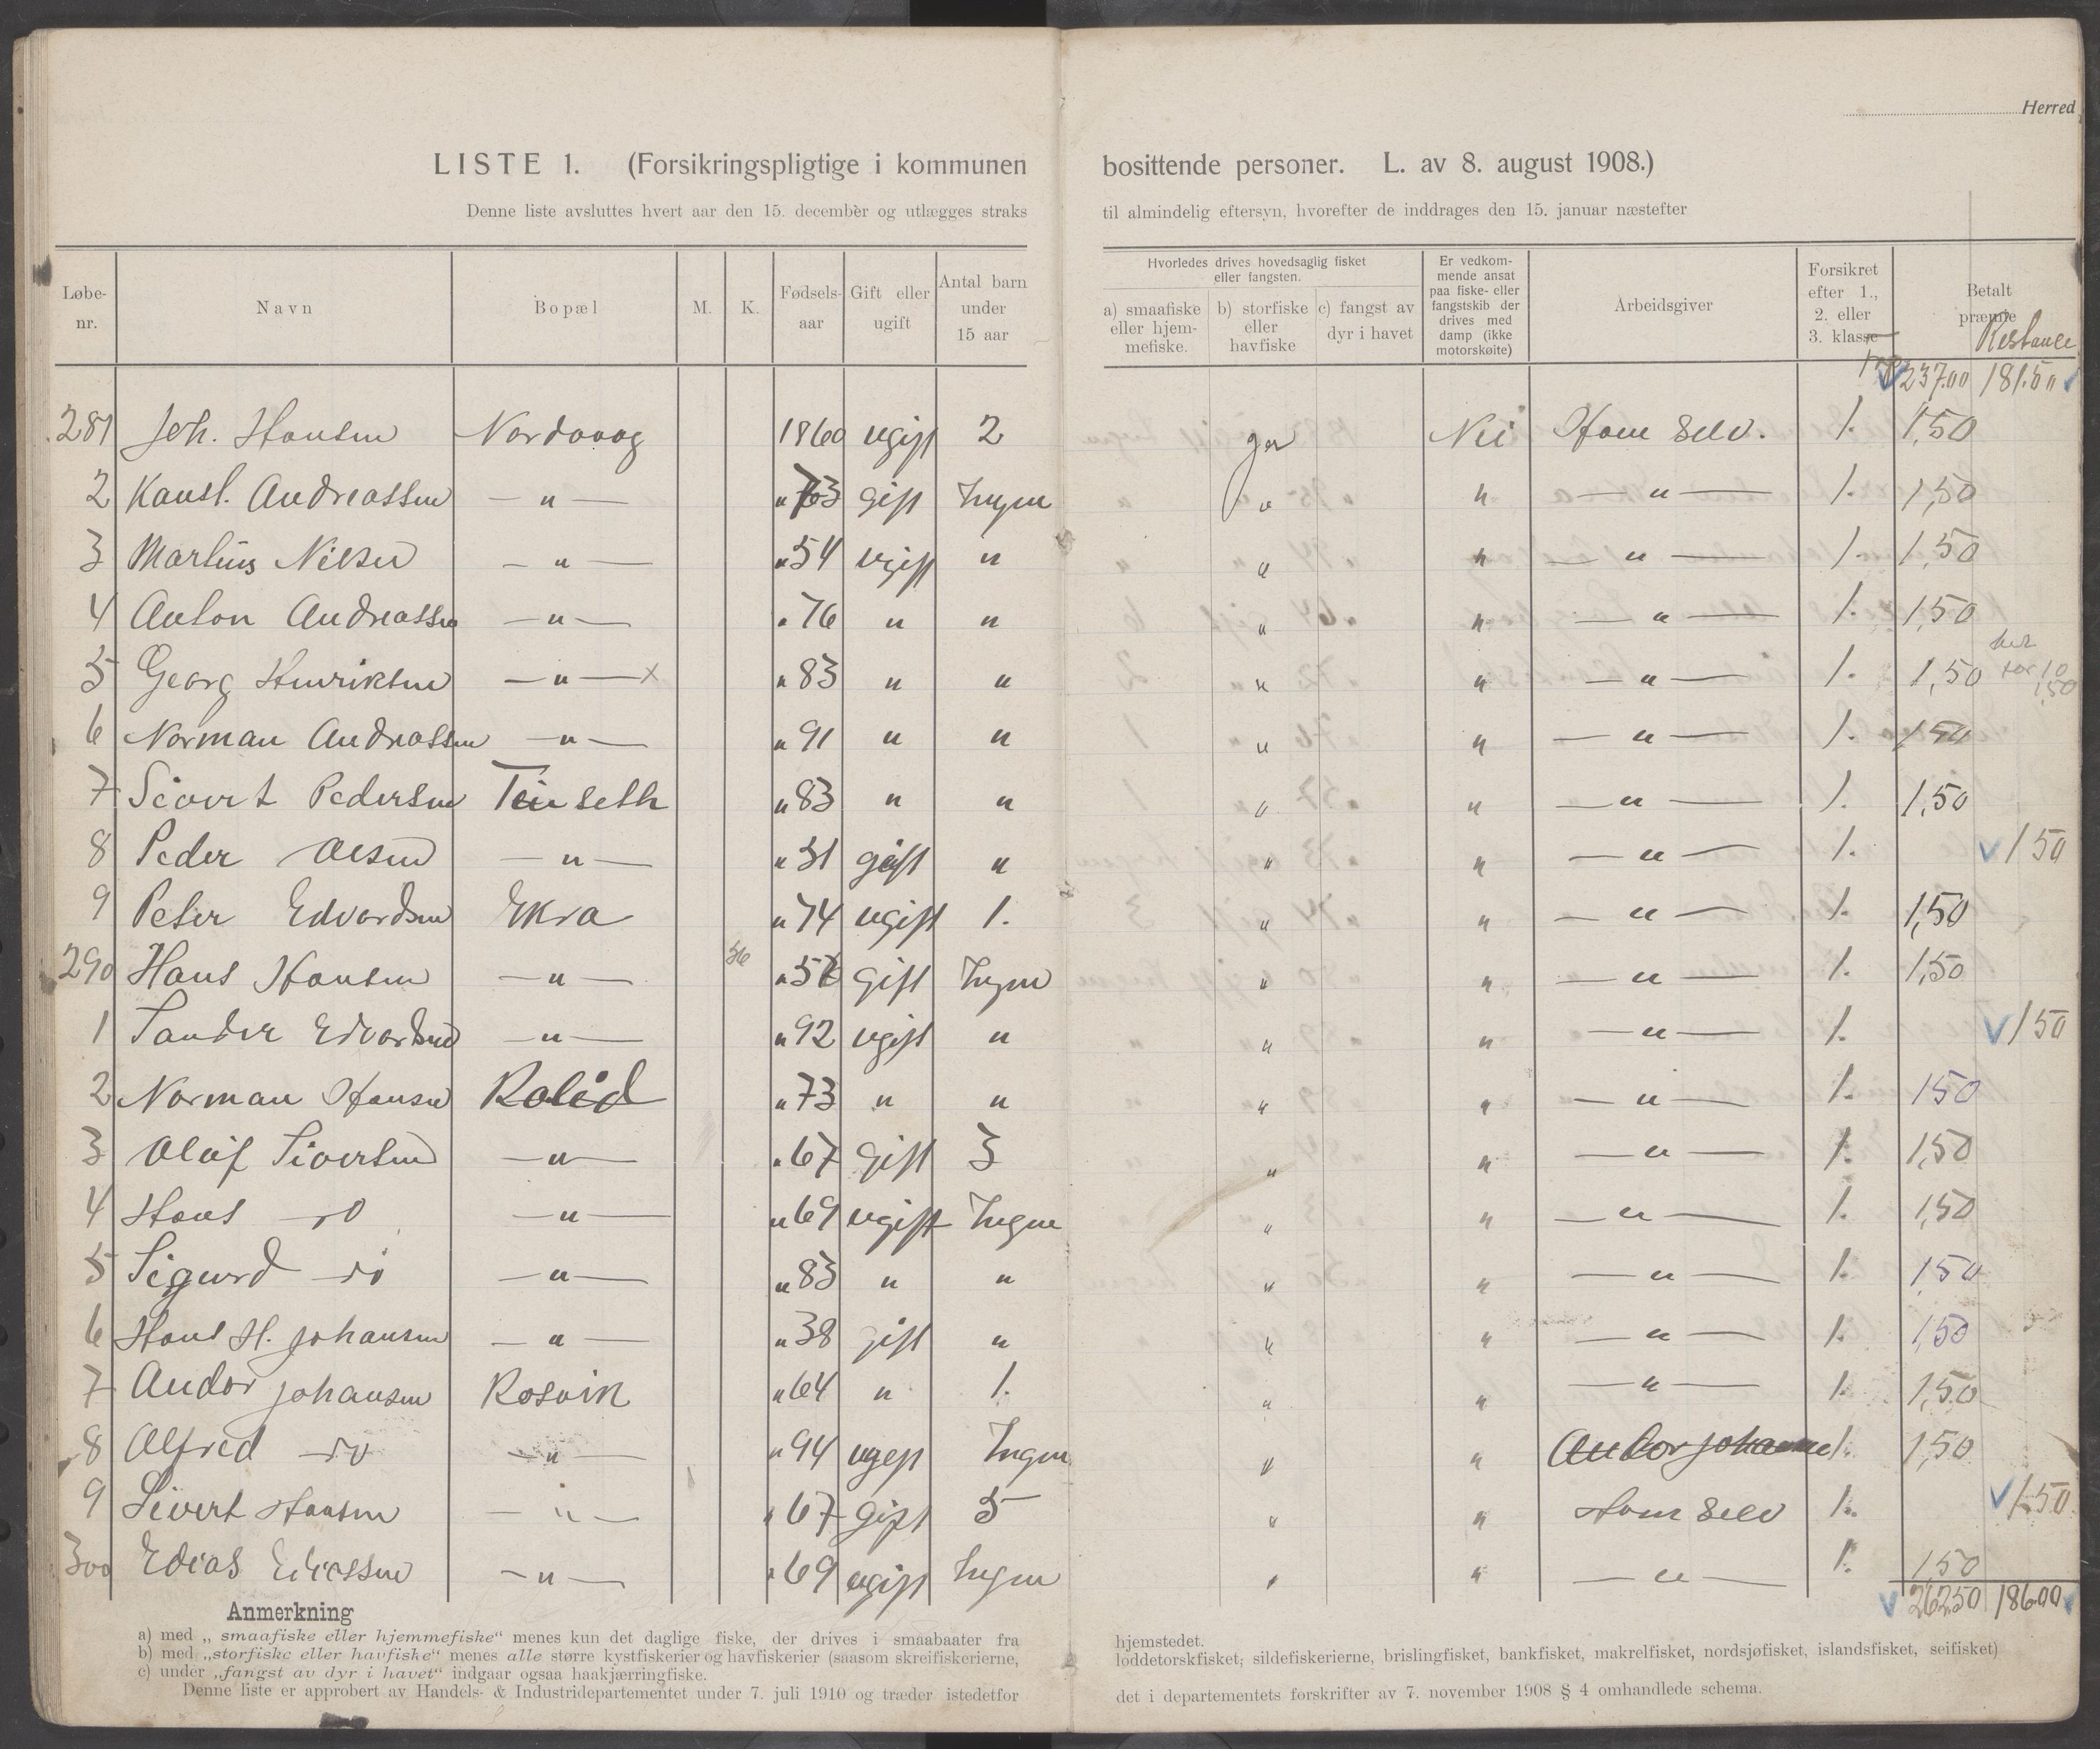 Herred
LISTE 1. (Forsikringspligtige i kommunen bosittende personer. L. av 8. august 1908.)
Denne liste avsluttes hvert aar den 15. december og utlægges straks til almindelig eftersyn, hvorefter de inddrages den 15. januar næstefter
Løbe-nr. Navn Bopæl M. K. Fødsels-aar Gift eller ugift Antal barn under 15 aar Hvorledes drives hovedsaglig fisket eller fangsten. a) smaafiske eller hjemmefiske. b) storfiske eller havfiske c) fangst av dyr i havet Er vedkommende ansat paa fiske- eller fangstskib der drives med damp (ikke motorskøite) Arbeidsgiver Forsikret efter 1., 2. eller 3. klasse Betalt præmie Restance
237.00 181.50
281 Joh. Hansen Nordvaag 1860 ugift 2 ja Nei Ham Selv. 1. 1,50
2 Kansl. Andreassen — " — " 63 gift Ingen " " — " — 1. 1,50
3 Martins Nilsen — " — " 54 ugift " " " — " — 1. 1,50
4 Anton Andreassen — " — " 76 " " " " — " — 1. 1,50
5 Georg Henriksen — " — x " 83 " " " " — " — 1. 1,50 for 10 1,50
6 Norman Andreassen — " — " 91 " " " " — " — 1. 1,50
7 Sivert Pedersen Tinseth " 83 " " " " — " — 1. 1,50
8 Peder Olsen — " — " 31 gift " " " — " — 1. 1 50
9 Peter Edvardsen Ekra " 74 ugift 1. " " — " — 1. 1,50
290 Hans Hansen — " — 56 " 57 gift Ingen " " — " — 1. 1,50
1 Sander Edvardsen — " — " 92 ugift " " " — " — 1. 1 50
2 Norman Hansen Rolid " 73 " " " " — " — 1. 150
3 Olaf Sivertsen — " — " 67 gift 3 " " — " — 1. 1,50
4 Hans — do — " — " 69 ugift Ingen " " — " — 1. 1,50
5 Sigurd — do — " — " 83 " " " " — " — 1. 1,50
6 Hans H. Johansen — " — " 38 gift " " " — " — 1. 1,50
7 Andor Johansen Rosvik " 64 " 1. " " — " — 1. 1,50
8 Alfred — do — " — " 94 ugift Ingen " " Andor Johansen 1. 1,50
9 Sivert Hansen — " — " 67 gift 5 " " Ham Selv 1. 1.50
300 Edias Eliassen — " — " 69 ugift Ingen " " — " — 1. 1,50
262.50 186.00
Anmerkning
a) med „smaafiske eller hjemmefiske“ menes kun det daglige fiske, der drives i smaabaater fra hjemstedet.
b) med „storfiske eller havfiske“ menes alle større kystfiskerier og havfiskerier (saasom skreifiskerierne, loddetorskfisket; sildefiskerierne, brislingfisket, bankfisket, makrelfisket, nordsjøfisket, islandsfisket, seifisket)
c) under „fangst av dyr i havet“ indgaar ogsaa haakjærringfiske.
Denne liste er approbert av Handels- & Industridepartementet under 7. juli 1910 og træder istedetfor det i departementets forskrifter av 7. november 1908 § 4 omhandlede schema.